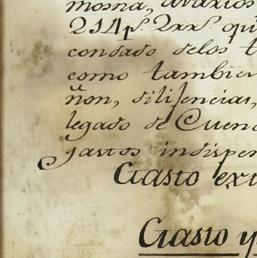 mosna, atrazos
214ps. 2xx. qu
condado delos t
como tambien
ñon, dilisencias,
legado de Cuen
gastos indispen
Gasto ext
Gasto y